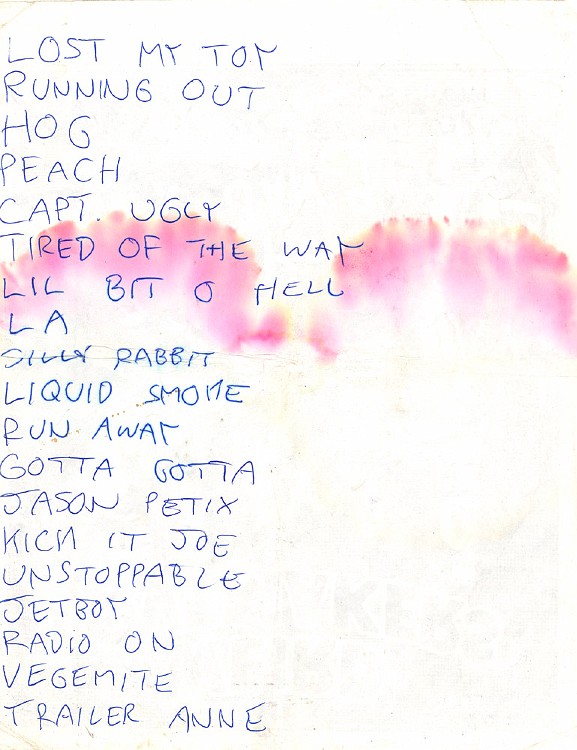 LOST MY TOY
RUNNING OUT
HOG
PEACH
CAPT. UGLY
TIRED OF THE WAY
LIL BIT O HELL
LA
SILLY RABBIT
LIQUID SMOKE
RUN AWAY
GOTTA GOTTA
JASON PETIX
KICK IT JOE
UNSTOPPABLE
JETBOY
RADIO ON
VEGEMITE
TRAILER ANNE